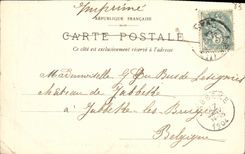 Imprimé
RÉPUBLIQUE FRANÇAISE
CARTE POSTALE
Ce côté est exclusivement réservé à l'adresse
Mademoiselle G. Du Bus de
château de Jabbeke
à Jabbeke lez Bruges
Belgique